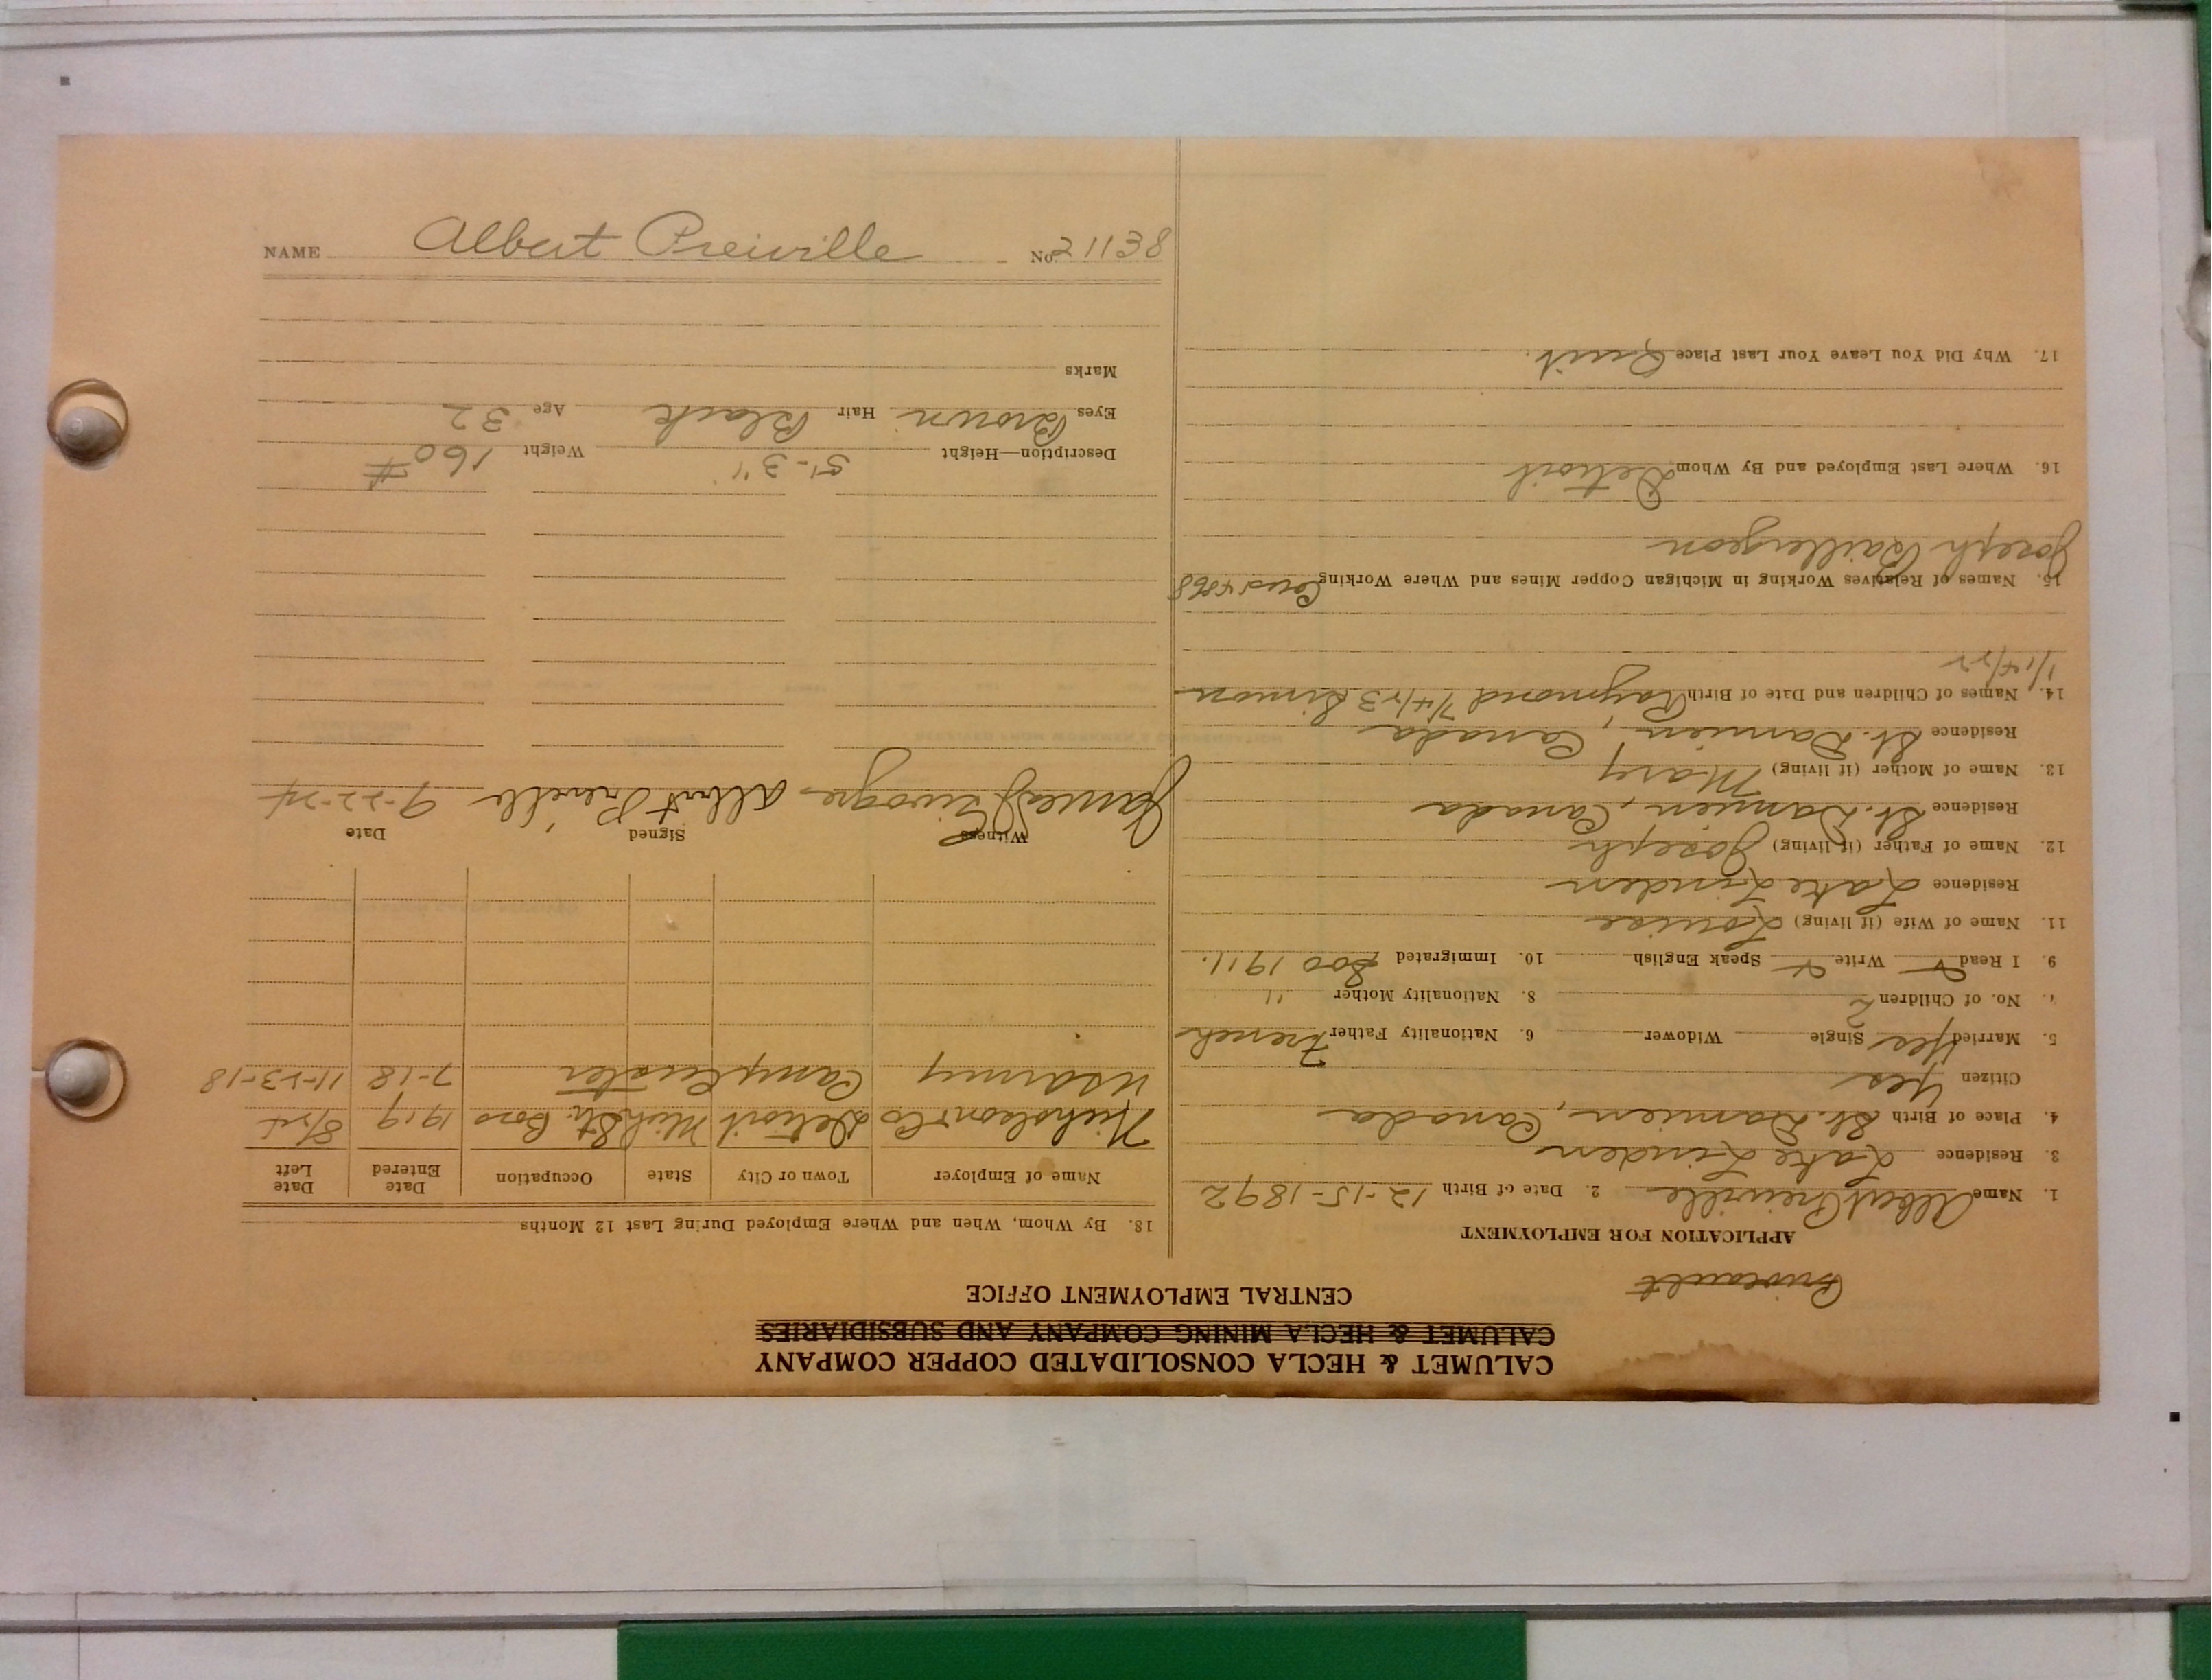 CALUMET & HECLA CONSOLIDATED COPPER COMPANY
CALUMET & HECLA MINING COMPANY AND SUBSIDIARIES
CENTRAL EMPLOYMENT OFFICE
APPLICATION FOR EMPLOYMENT
1. Name Albert Preiville 2. Date of Birth 12-15-1892
3. Residence Lake Linden
4. Place of Birth St. Damien, Canada
Citizen Yes
5. Married Yes Single Widower 6. Nationality Father French
7. No. of Children 2 8. Nationality Mother "
9. I Read Write Speak English 10. Immigrated Soo 1911.
11. Name of Wife (if living) Louise
Residence Lake Linden
12. Name of Father (if living) Joseph
Residence St. Damien, Canada
13. Name of Mother (if living) Mary
Residence St. Damien, Canada
14. Names of Children and Date of Birth Raymond 7/4/23 Simon
1/14/22
15. Names of Relatives Working in Michigan Copper Mines and Where Working
Joseph Baillergeon
16. Where Last Employed and By Whom Detroit
17. Why Did You Leave Your Last Place Quit.
18. By Whom, When and Where Employed During Last 12 Months
Name of Employer Town or City State Occupation Date Entered Date Left
Nicholson & Co Detroit Mich St. Boss 1919 8/24
US army Camp Custer 7-18 11-23-18
Witness Signed Date
James Albert Preville 9-22-24
Description—Height 5'-3" Weight 160 #
Eyes Brown Hair Black Age 32
Marks
NAME Albert Preiville No. 21138